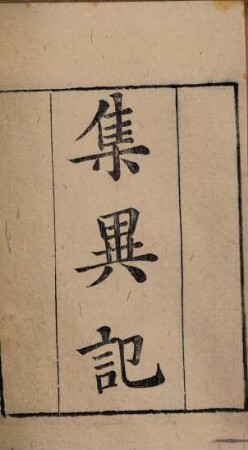 集異記